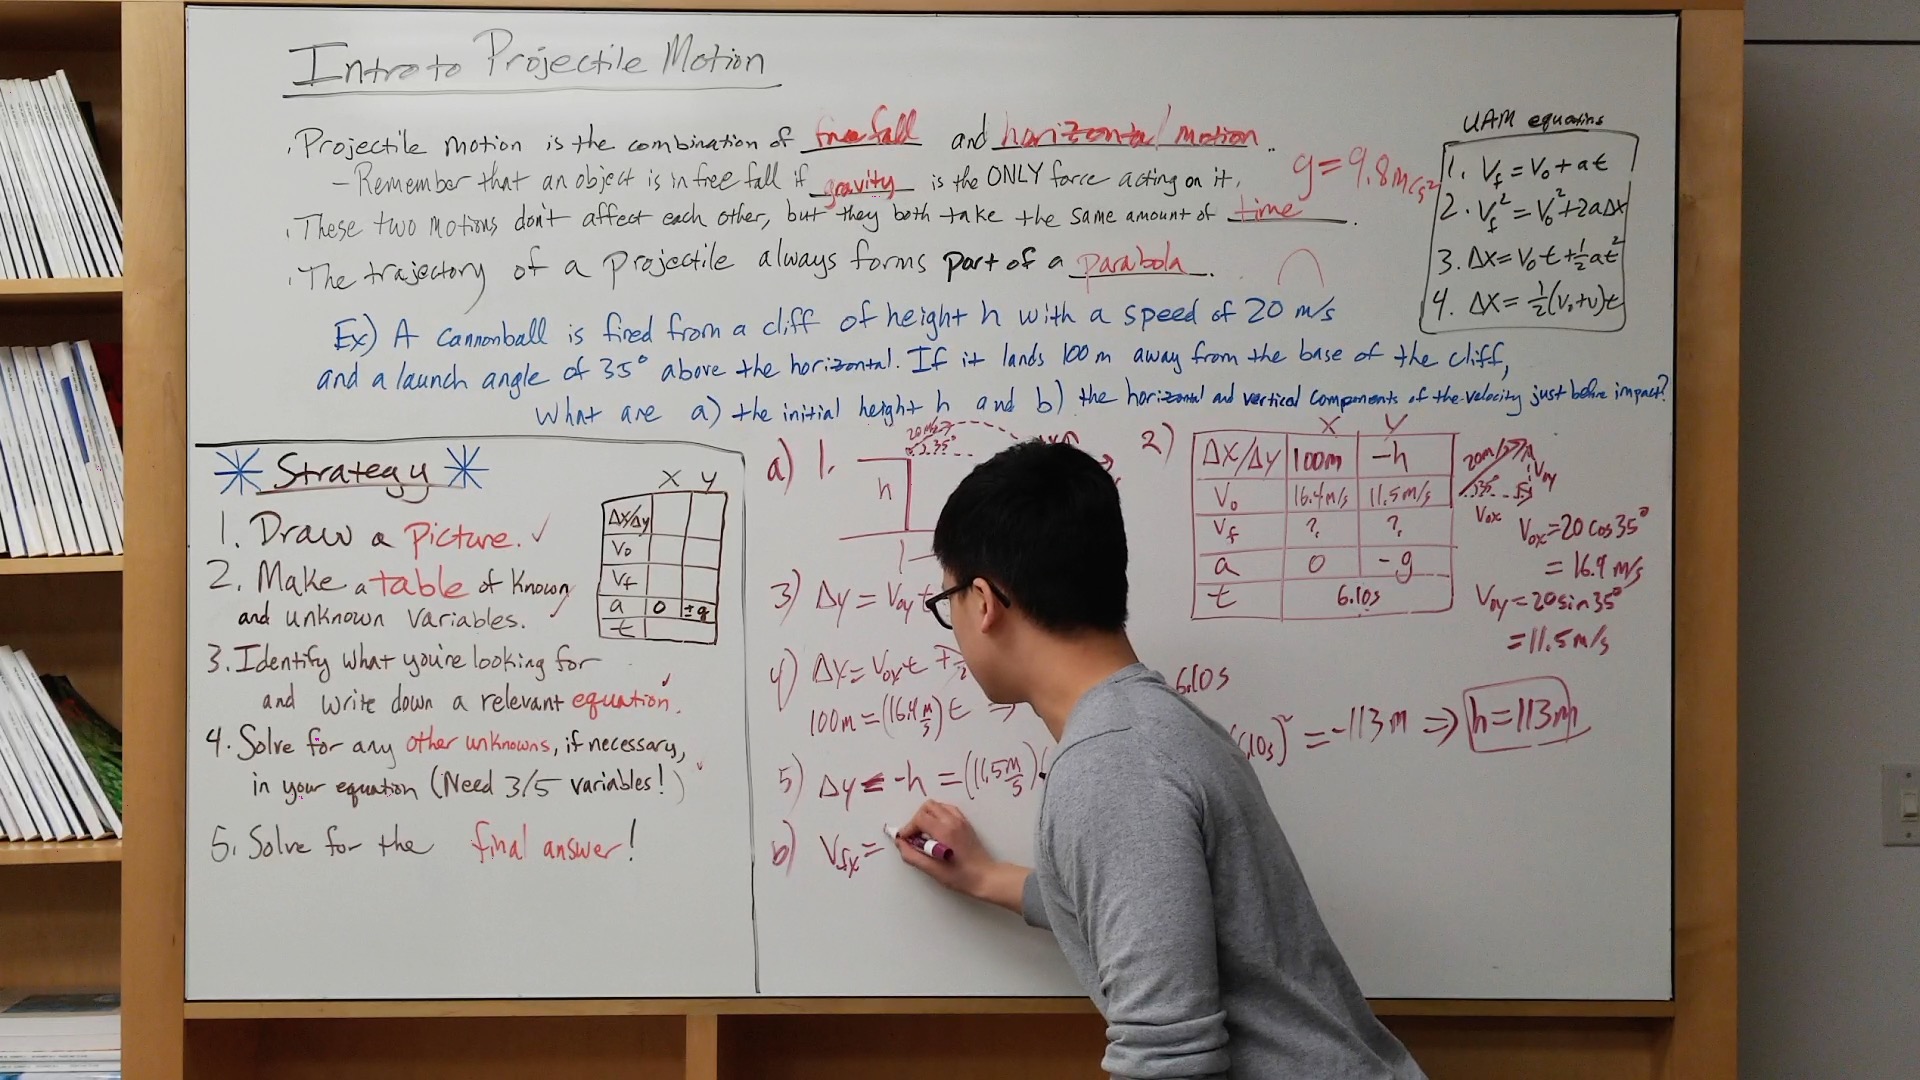 Intro to Projectile Motion
. Projectile motion is the combination of free fall and horizontal motion.
- Remember that an object is in free fall if gravity is the ONLY force acting on it.
g = 9.8 m/s²
. These two motions don't affect each other, but they both take the same amount of time.
. The trajectory of a projectile always forms part of a parabola.
UAM equations
1. Vf = V₀ + at
2. Vf² = V₀² + 2aΔx
3. Δx = V₀t + ½at²
4. Δx = ½(V₀+V)t
Ex) A cannonball is fired from a cliff of height h with a speed of 20 m/s
and a launch angle of 35° above the horizontal. If it lands 100 m away from the base of the cliff,
what are a) the initial height h and b) the horizontal and vertical components of the velocity just before impact?
Strategy
1. Draw a picture. ✓
2. Make a table of known
and unknown variables.
3. Identify what you're looking for
and write down a relevant equation.
4. Solve for any other unknowns, if necessary,
in your equation (Need 3/5 variables!)
5. Solve for the final answer!
X Y
Δx/Δy
V₀
Vf
a 0 ±g
t
a) 1.
20 m/s
35°
h
2)
X Y
Δx/Δy 100m -h
V₀ 16.4m/s 11.5m/s
Vf ? ?
a 0 -g
t 6.10s
20m/s
35°
Voy
Vox
Vox = 20 cos 35°
= 16.4 m/s
Voy = 20 sin 35°
= 11.5 m/s
3) Δy = Voy t
4) Δx = Vox t +
100m = (16.4 m/s) t ⇒ 6.10s
5) Δy = -h = (11.5 m/s) (6.10s)² = -113 m ⇒ h = 113m
b) Vfx =